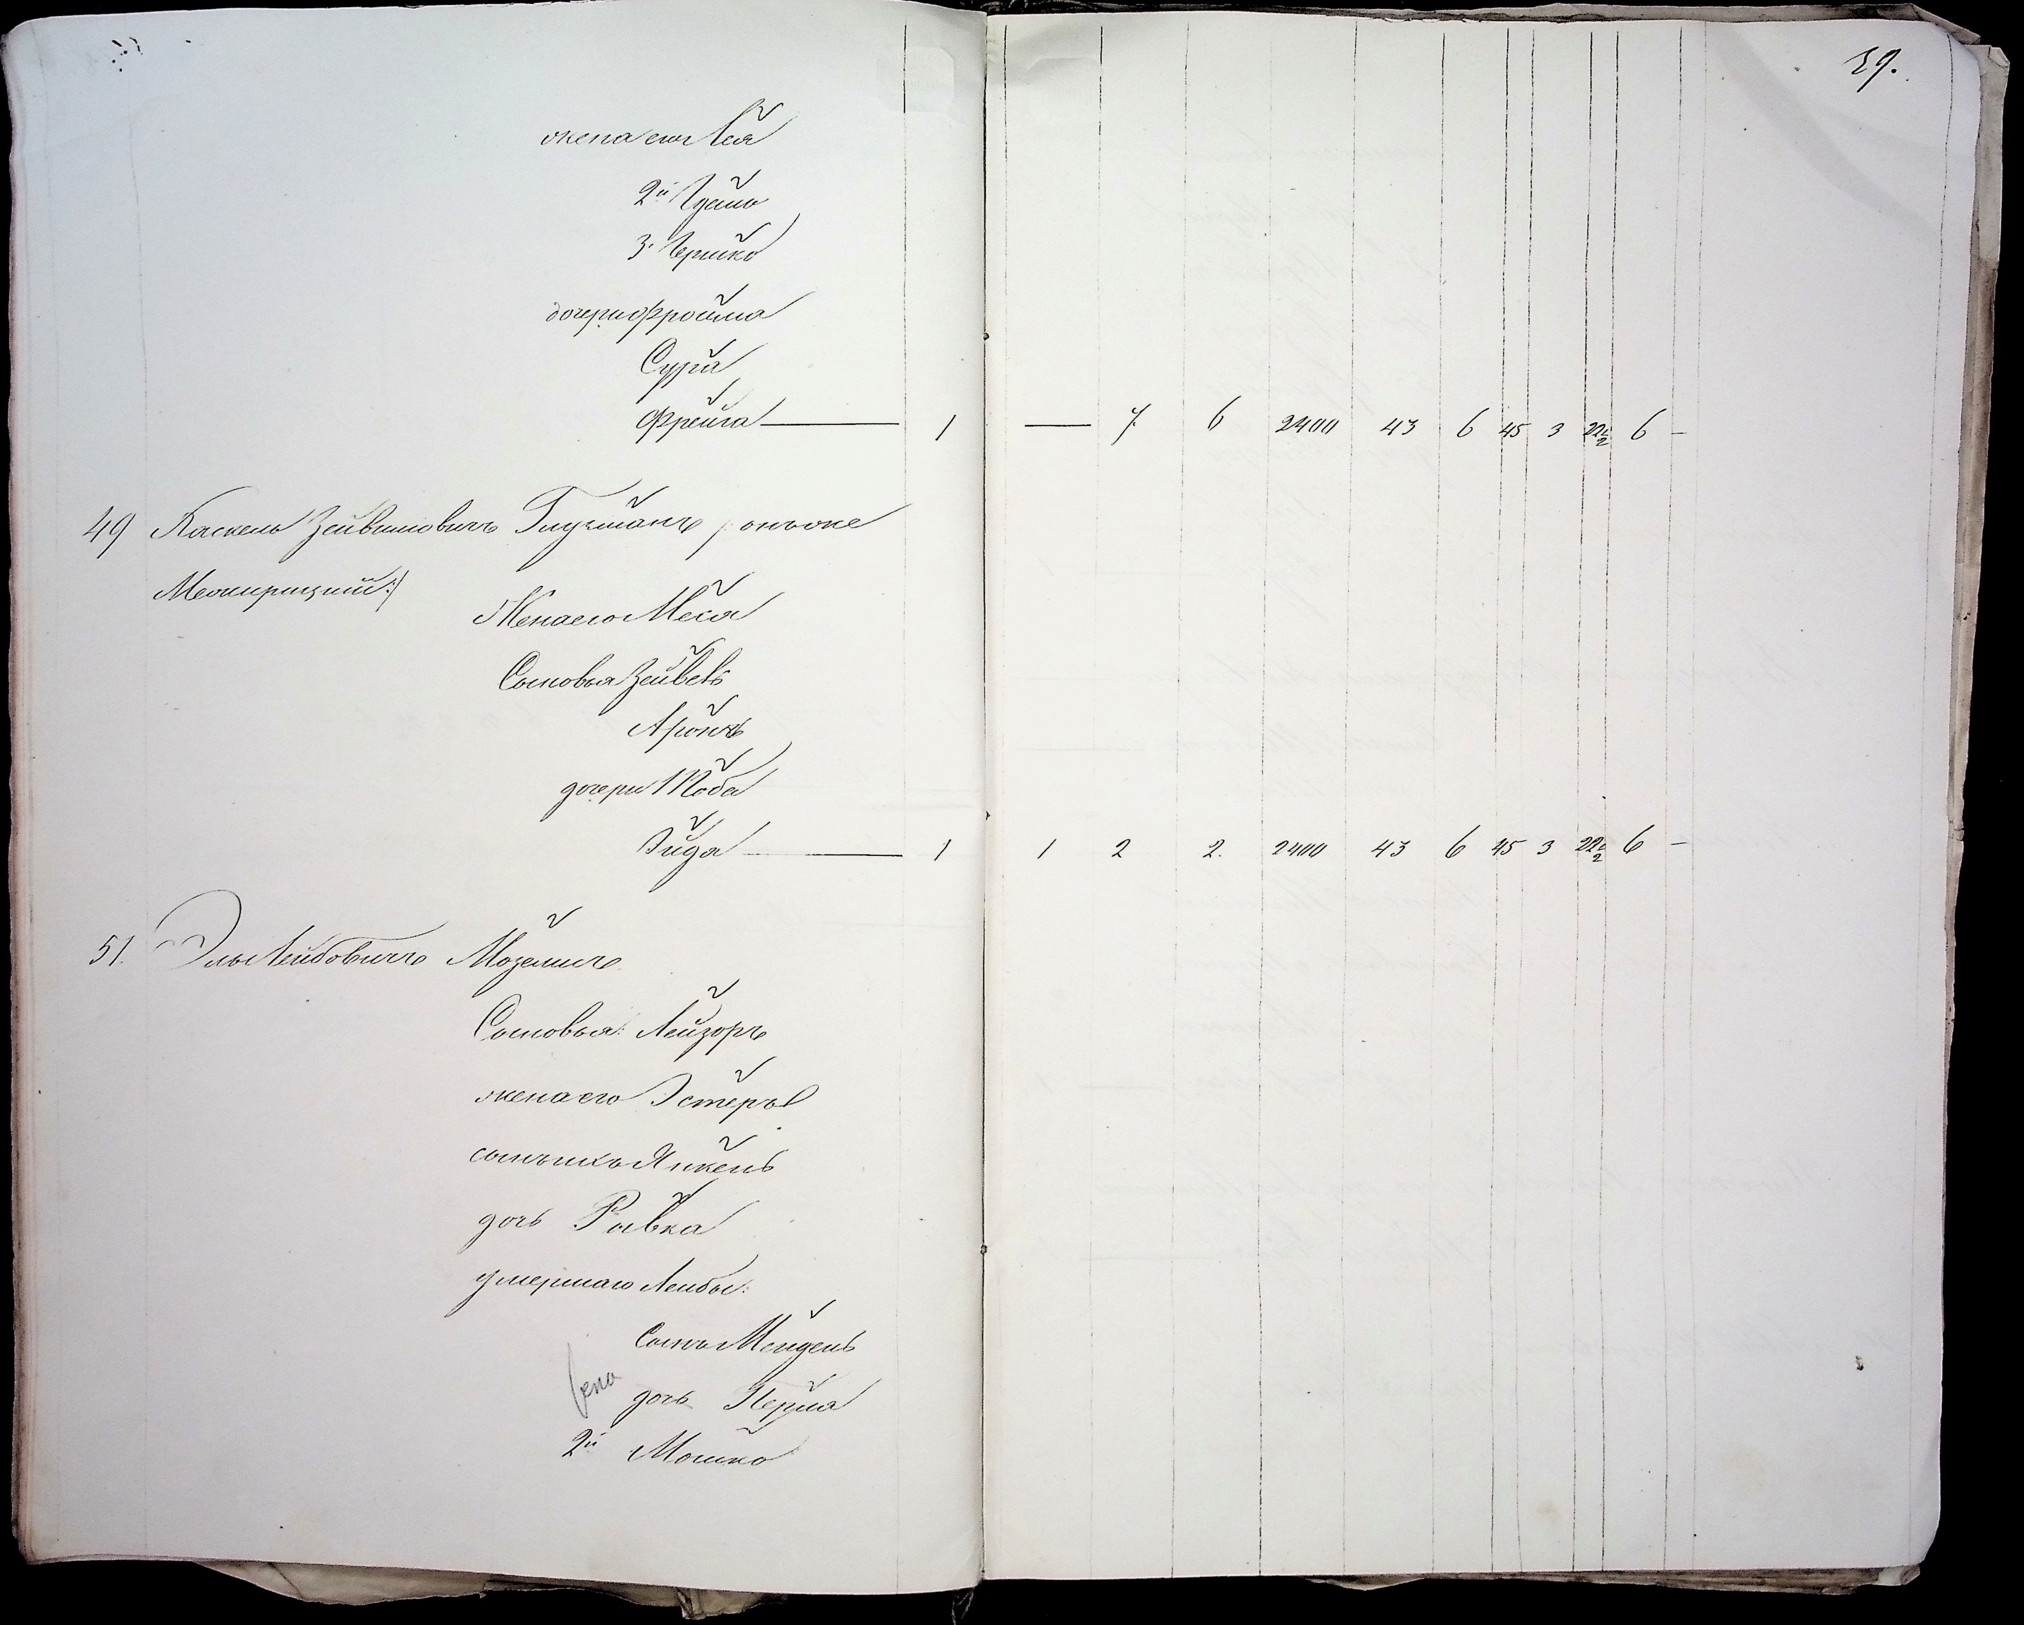 29.
жена его Лея
2й Удель
3. Гершко
дочери Фройма
Сура
Фрейга — 1 — 7 6 2400 43 6 45 3 22½ 6 —
49 Каскель Зейвиловичъ Глузманъ /: онъ же
Межирицкий :/
Жена его Меся
Сыновья Зейвель
Аронъ
дочери Тоба
Зида — 1 1 2 2. 2400 43 6 45 3 22½ 6 —
51. Эль Лейбовичъ Мозелисъ
Сыновья: Лейзоръ
жена его Эстеръ
сынъ ихъ Янкель
дочь Рывка
умершаго Лейбы:
Сынъ Мендель
дочь Перля
2й Мошко